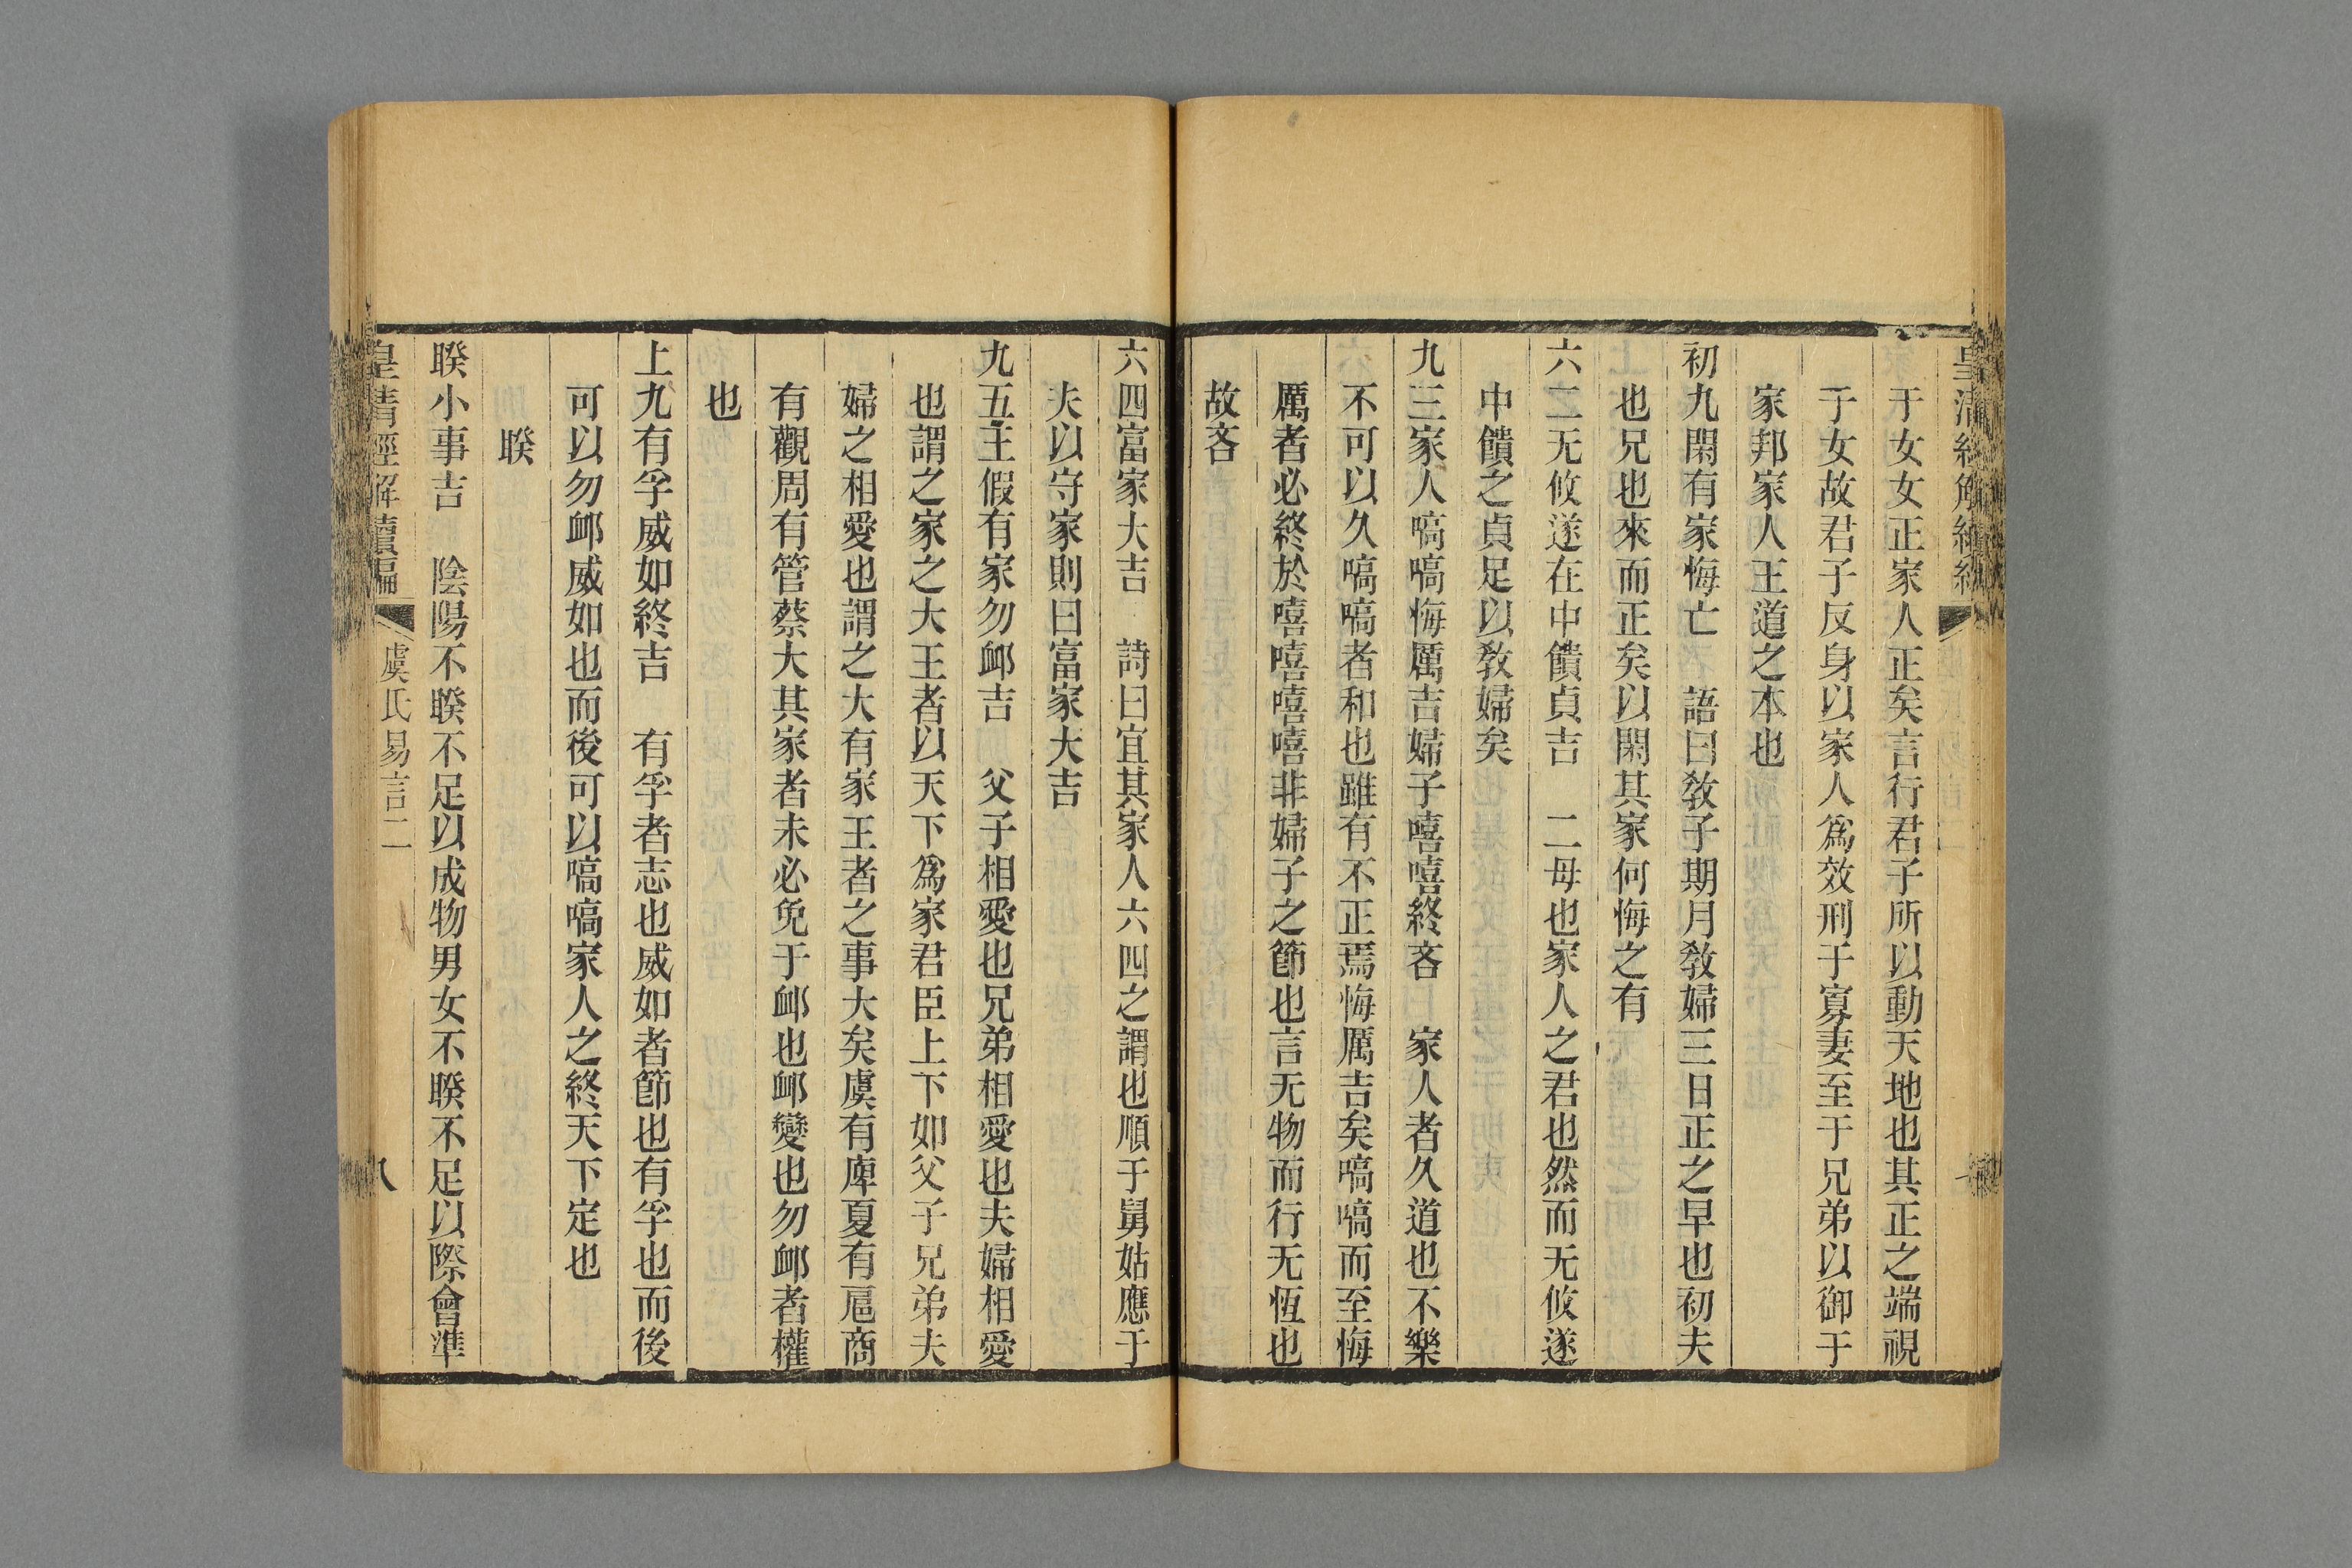 于女女正家人正矣言行君子所以動天地也其正之端視
于女故君子反身以家人爲效刑于寡妻至于兄弟以御于
家邦家人王道之本也
初九閑有家悔亡　語曰敎子期月敎婦三日正之早也初夫
也兄也來而正矣以閑其家何悔之有
六二无攸遂在中饋貞吉　二母也家人之君也然而无攸遂
中饋之貞足以敎婦矣
九三家人嗃嗃悔厲吉婦子嘻嘻終吝　家人者久道也不樂
不可以久嗃嗃者和也雖有不正焉悔厲吉矣嗃嗃而至悔
厲者必終於嘻嘻嘻嘻非婦子之節也言无物而行无恆也
故吝
六四富家大吉　詩曰宜其家人六四之謂也順于舅姑應于
夫以守家則曰富家大吉
九五王假有家勿䘏吉　父子相愛也兄弟相愛也夫婦相愛
也謂之家之大王者以天下爲家君臣上下如父子兄弟夫
婦之相愛也謂之大有家王者之事大矣虞有庳夏有扈商
有觀周有管蔡大其家者未必免于䘏也䘏變也勿䘏者權
也
上九有孚威如終吉　有孚者志也威如者節也有孚也而後
可以勿䘏威如也而後可以嗃嗃家人之終天下定也
睽
睽小事吉　陰陽不睽不足以成物男女不睽不足以際會準
皇清經解續編　虞氏易言二　八